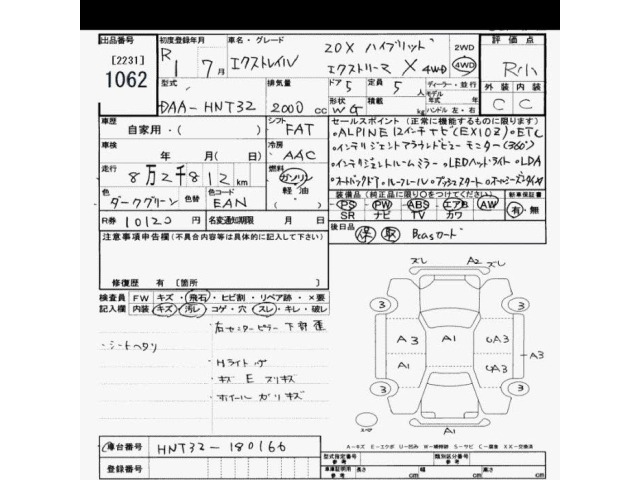 出品番号 初度登録年月 車名・グレード 20X ハイブリッド 2WD 評価点
[2231] R1 7月 エクストレイル エクストリーマーX 4WD 4WD R
1062 型式 排気量 ドア 5 定員 5 ディーラー・並行 外装 内装
DAA-HNT32 2000 cc 形状 WG 積載 kg モデル年式 年式 ハンドル 左・右 C C
車歴 自家用・( ) シフト FAT セールスポイント(正常に機能するものに限ります)
車検 年 月(年 月) 冷房 AAC 。ALPINE 12インチナビ(EX10Z) 。ETC
。インテリジェントアラウンドビューモニター(360°)
走行 8万2千812km 燃料 ガソリン 軽油 。インテリジェントルームミラー 。LEDヘッドライト 。LDA
色 ダークグリーン 色替 色コード EAN 。オートバックドア ・ルーフレール・プッシュスタート
装備品(純正品に限り○をつけてください) 新車保証書
PS PW ABS エアB AW 有・無
SR ナビ TV カワ
R券 10120 名変通知期限 月 日 後日品 保 取 Bcasカード
注意事項申告欄(不具合内容等は具体的に記入して下さい)
修復歴 有 [箇所 ]
検査員 FW キズ・飛石・ヒビ割・リペア跡・×要
記入欄 内装 キズ・汚レ・コゲ・穴・スレ・キレ・破レ
右センターピラー下部歪
シートヘタリ
Hライト
キズ E スリキズ
ホイール ガリキズ
ズレ A2 ズレ
3 3
A3 A1 A3
A3
A3 A1 A3
3 3
スペア A1
A-キズ E-エクボ U-凹み W-補修跡 S-サビ C-腐食 XX-交換済
車台番号 HNT32-180166
登録番号
型式指定番号 参考 類別区分番号 参考
車庫証明用 参考 長さ cm 幅 cm 高さ cm